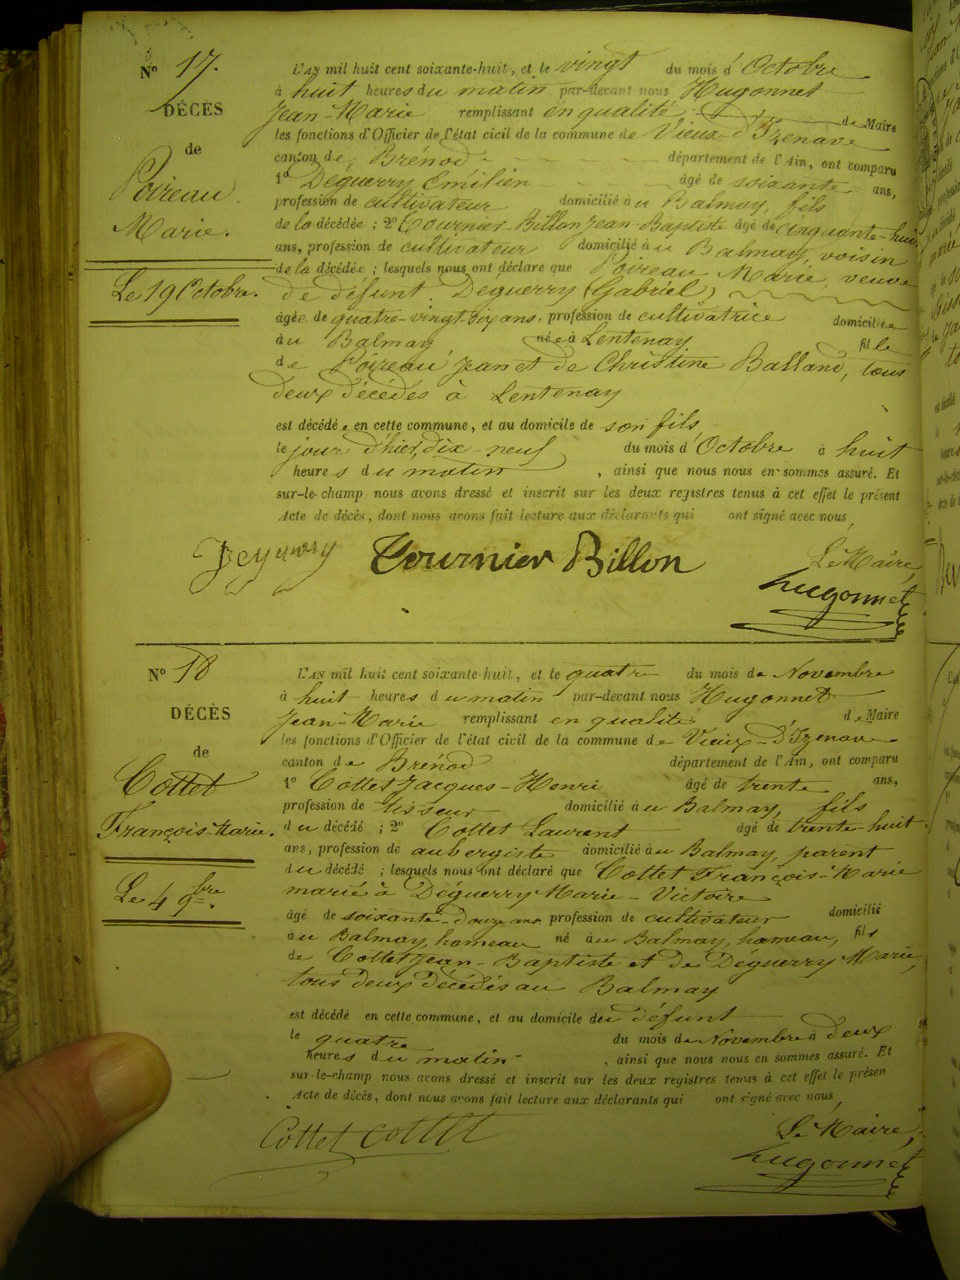 Nº 17.
DÉCÈS
de
Poireau
Marie.
Le 19 Octobre.
L'AN mil huit cent soixante-huit, et le vingt du mois d'Octobre
à huit heures du matin par-devant nous Hugonnet
Jean-Marie remplissant en qualité de Maire
les fonctions d'Officier de l'état civil de la commune de Vieux-d'Izenave
canton de Brénod département de l'Ain, ont comparu
1º Déguerry Emilien âgé de soixante ans,
profession de cultivateur domicilié au Balmay, fils
de la décédée ; 2º Tournier-Billon Jean-Baptiste âgé de cinquante-huit
ans, profession de cultivateur domicilié au Balmay, voisin
de la décédée ; lesquels nous ont déclaré que Poireau Marie, veuve
de défunt Déguerry (Gabriel)
âgée de quatre-vingt-dix ans, profession de cultivatrice domiciliée
au Balmay née à Lentenay fille
de Poireau Jean et de Christine Balland, tous
deux décédés à Lentenay
est décédée en cette commune, et au domicile de son fils
le jour d'hier, dix-neuf du mois d'Octobre à huit
heures du matin, ainsi que nous nous en sommes assuré. Et
sur-le-champ nous avons dressé et inscrit sur les deux registres tenus à cet effet le présent
Acte de décès, dont nous avons fait lecture aux déclarants qui ont signé avec nous
Deguerry Tournier Billon Le Maire,
Hugonnet
Nº 18
DÉCÈS
de
Cottet
François-Marie.
Le 4 9bre.
L'AN mil huit cent soixante-huit, et le quatre du mois de Novembre
à huit heures du matin par-devant nous Hugonnet
Jean-Marie remplissant en qualité de Maire
les fonctions d'Officier de l'état civil de la commune de Vieux-d'Izenave
canton de Brénod département de l'Ain, ont comparu
1º Cottet Jacques-Henri âgé de trente ans,
profession de tisseur domicilié au Balmay, fils
du décédé ; 2º Cottet Laurent âgé de trente-huit
ans, profession de aubergiste domicilié au Balmay, parent
du décédé ; lesquels nous ont déclaré que Cottet François-Marie
marié à Déguerry Marie-Victoire
âgé de soixante-douze ans profession de cultivateur domicilié
au Balmay, hameau né au Balmay, hameau, fils
de Cottet Jean-Baptiste et de Déguerry Marie,
tous deux décédés au Balmay
est décédé en cette commune, et au domicile du défunt
le quatre du mois de Novembre à deux
heures du matin, ainsi que nous nous en sommes assuré. Et
sur-le-champ nous avons dressé et inscrit sur les deux registres tenus à cet effet le présen
Acte de décès, dont nous avons fait lecture aux déclarants qui ont signé avec nous,
Cottet Cottet Le Maire,
Hugonnet